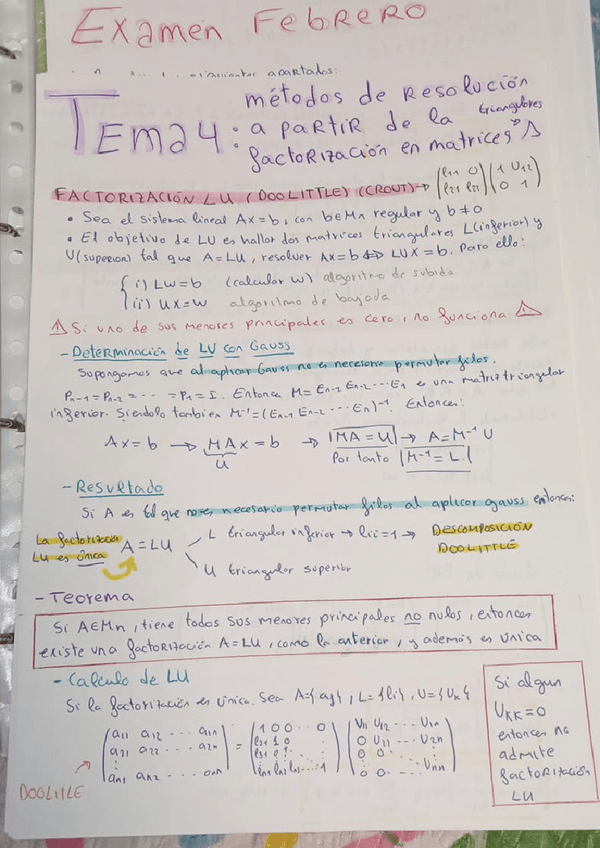 Examen FEBRERO
apartados:
TEMA 4: métodos de Resolución
a partir de la triangulares
factorización en matrices Δ
FACTORIZACIÓN LU (DOOLITTLE) (CROUT) → (l11 0 / l21 l22) (1 U12 / 0 1)
• Sea el sistema lineal Ax = b, con b∈Mn regular y b≠0
• El objetivo de LU es hallar dos matrices triangulares L(inferior) y
U(superior) tal que A=LU, resolver Ax=b ⇔ LUX=b. Para ello:
i) Lw=b (calcular w) algoritmo de subida
ii) Ux=w algoritmo de bajada
⚠ Si uno de sus menores principales es cero, no funciona ⚠
- Determinación de LU con Gauss
Supongamos que al aplicar Gauss no es necesario permutar filas.
Pn-1 = Pn-2 = ... = P1 = I. Entonces M = En-1 En-2 ... E1 es una matriz triangular
inferior. Siendolo tambien M⁻¹ = (En-1 En-2 ... E1)⁻¹. Entonces:
Ax=b → MAx = b → MA = U → A = M⁻¹ U
U Por tanto M⁻¹ = L
- Resultado
Si A es tal que no es necesario permutar filas al aplicar gauss entonces:
La factorización
LU es única A=LU
L triangular inferior → lii=1 → DESCOMPOSICIÓN
DOOLITTLE
U triangular superior
- Teorema
Si A∈Mn, tiene todos sus menores principales no nulos, entonces
existe una factorización A=LU, como la anterior, y además es única
- Calculo de LU
Si la factorización es única. Sea A={aij}, L={li}, U={Uk}
(a11 a12 ... a1n) = (1 0 0 ... 0) (U11 U12 ... U1n)
(a21 a22 ... a2n) (l21 1 0) (0 U22 ... U2n)
(l31 0 1 ..) (0 0)
(an1 an2 ... ann) (ln1 ln2 ln3 ... 1) (0 0 ... Unn)
DOOLITLE
Si algun
UKK=0
entonces no
admite
factorización
LU